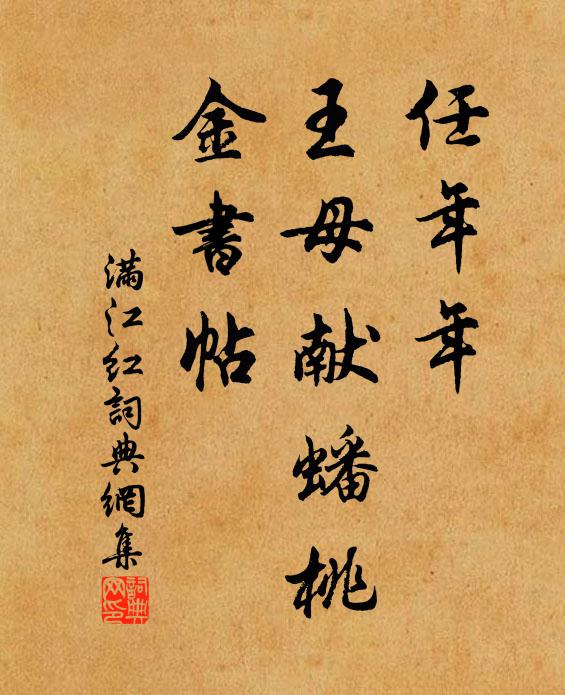 任年年
王母献蟠桃
金書帖
满江红詞典網集
詞典
网印